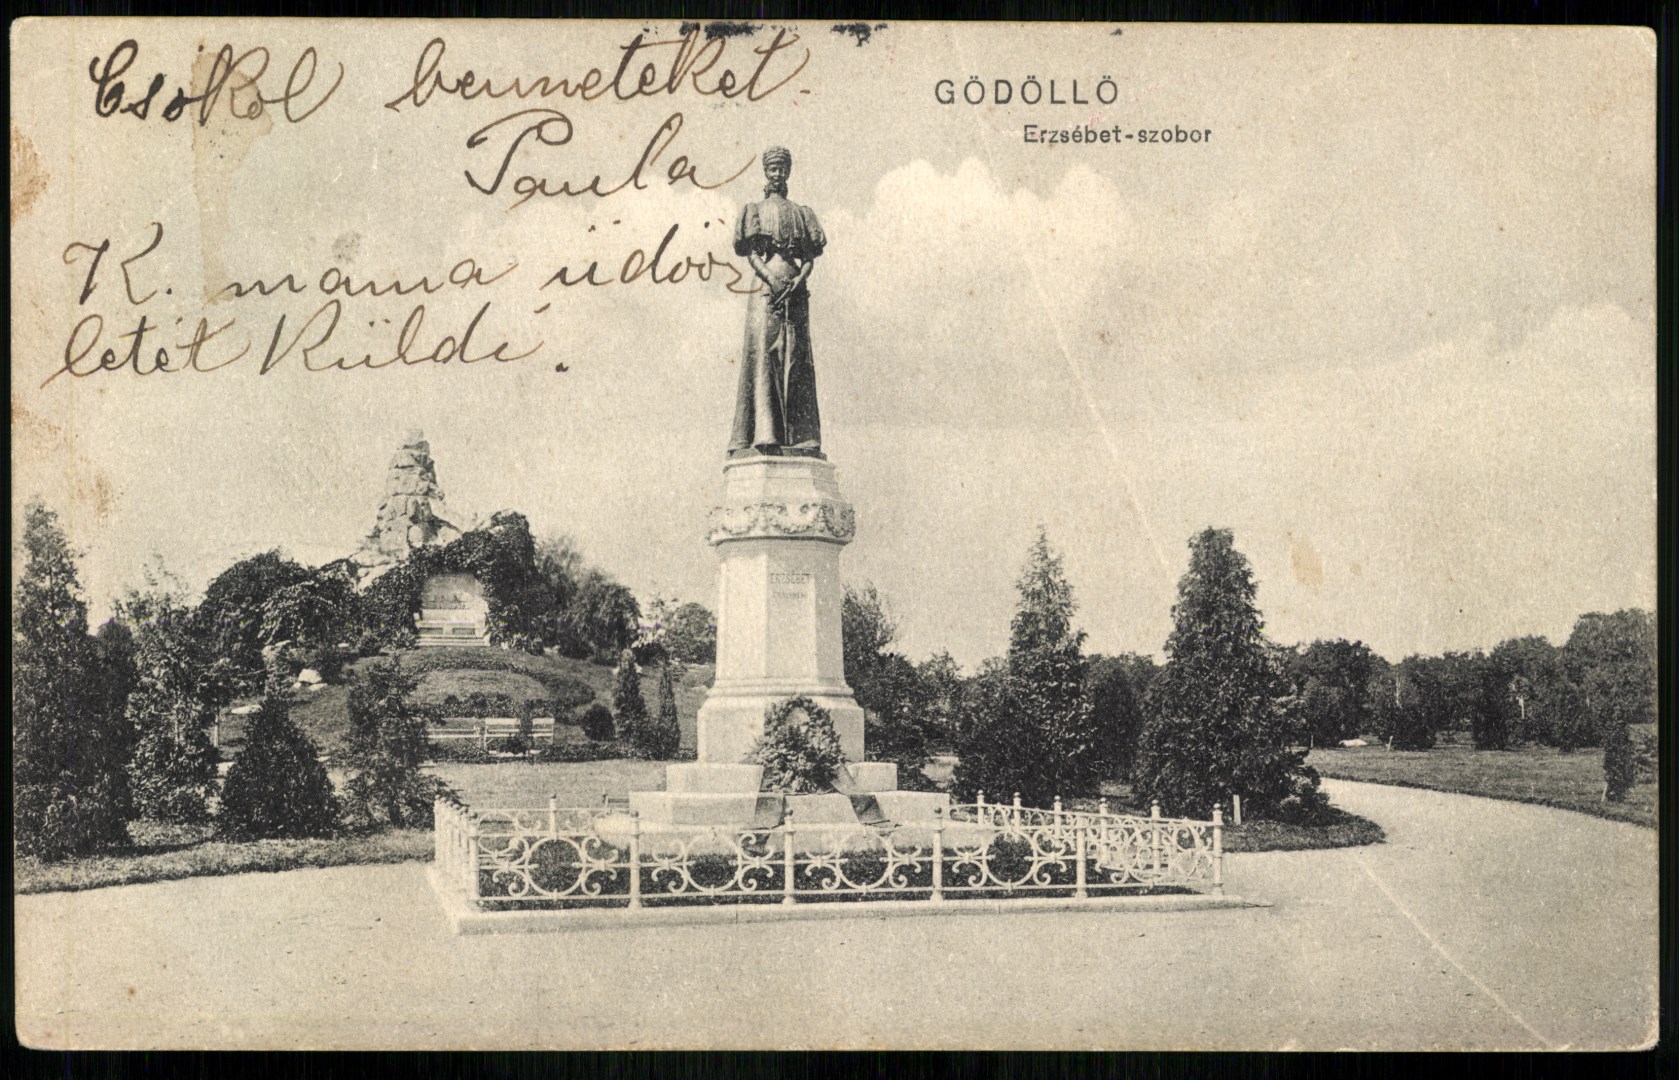 Csokol benneteket.
Paula
K. mama üdvöz
letét Küldi.
GÖDÖLLŐ
Erzsébet-szobor
ERZSÉBET